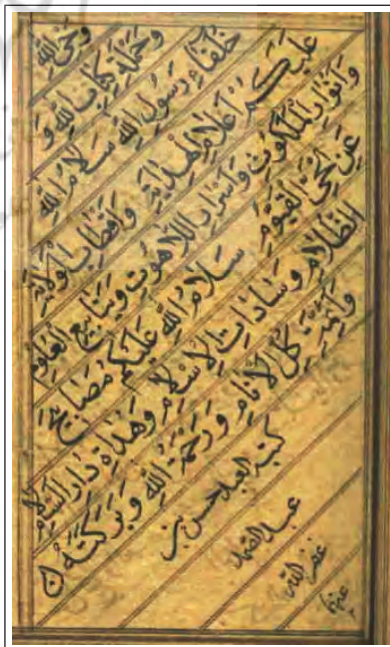 وحي الله
وحملة كتاب الله و
خلفاء رسول الله سلام الله
عليكم أعلام الهداية وأقطاب الولاية
وأنوار الملكوت وأسرار اللاهوت وينابيع العلوم
عن الحي القيوم سلام الله عليكم مصابيح
الظلام وسادات الإسلام وهداة دار السلام
وأئمة كل الأنام ورحمة الله وبركته
كتبه العبد حسن بن
عبد الصمد
غفر الله
عنهما